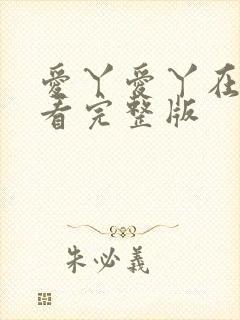 愛丫愛丫在
看完整版
朱必義